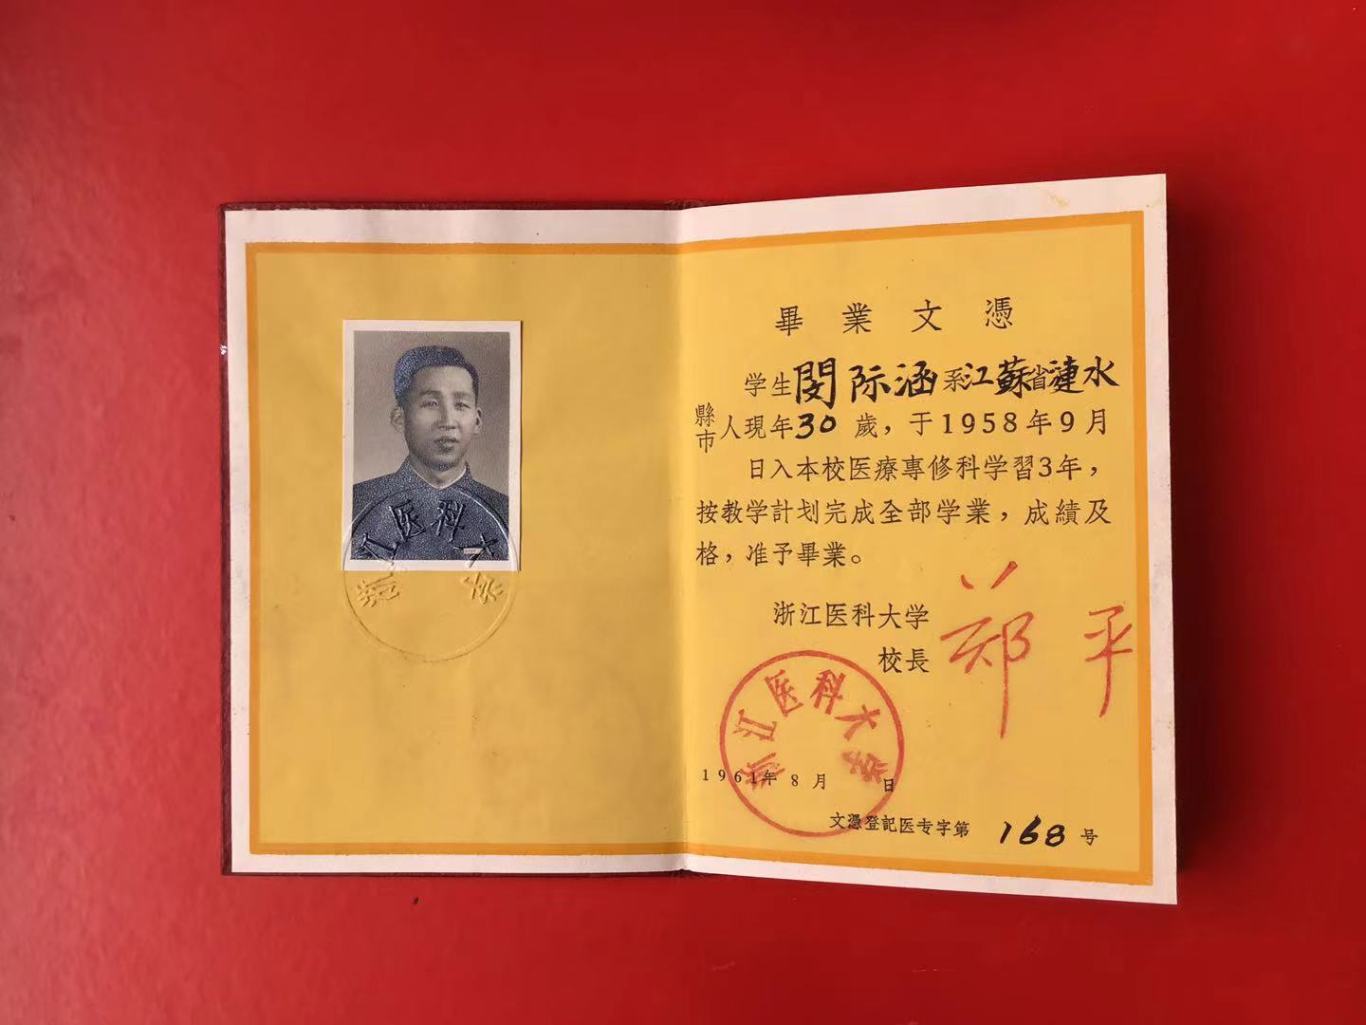 浙江医科大学
畢業文憑
学生閔际涵系江蘇省漣水
縣市人現年30歲，于1958年9月
日入本校医療專修科学習3年，
按教学計划完成全部学業，成績及
格，准予畢業。
浙江医科大学
校長 郑平
浙江医科大学
1961年8月 日
文憑登記医专字第168号